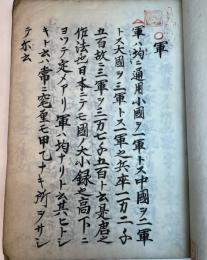 ○軍
軍ハ均ニ通用小國ヲ一軍トス中國ヲ二軍
トス大國ヲ三軍トス一軍之兵卒一万二千
五百故ニ三軍ヲ三万七千五百ト云是唐之
作法也日本ニテモ國ノ大小録之高下ニ
ヨツテ定メアリ軍ハ均ナリト云其ヒトシ
キト云ハ常ニ乞
重モ甲乙ナキ所ヲサシ
テ尓云